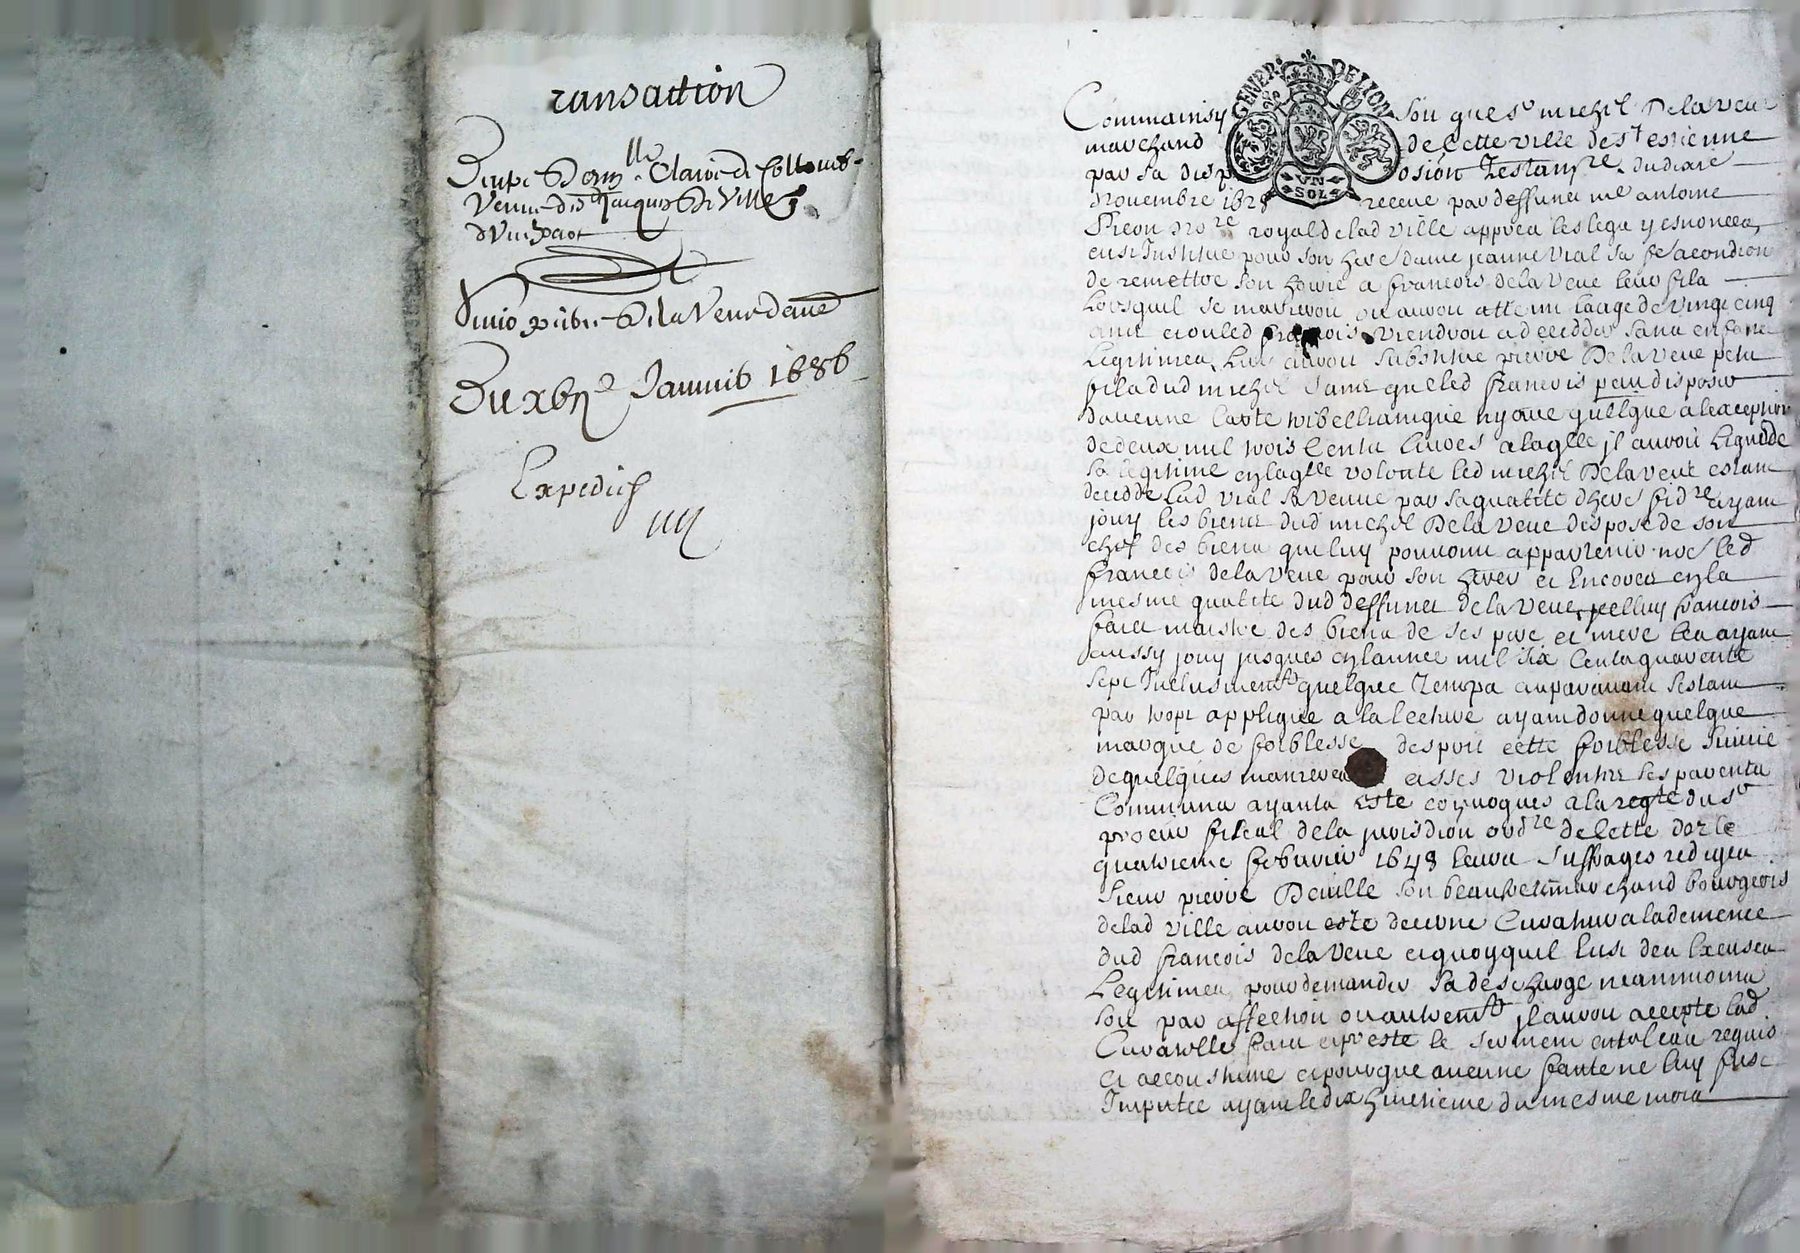 ransaction
Entre Dam.lle Claire de Collomb
Vefue de Sr Jacques De Ville
Du xbre Januie 1686
Expedie
GENER. DE LION
UN SOL
Comme ainsy soit que Sr michel Delaveue
marchand de cette ville de St estienne
par sa disposition Testamre du dixre
novembre 1628 receue par deffunct me antoine
nore royal de lad ville appres les legz y esnoncez
eust Institue pour son here dame jeanne vial sa fe a condion
de remettre son hoirie a francois delaveue leur filz
Lorsquil se marieroit ou auroit atteint laage de vingt cinq
ans et ou led francois viendroit a decedder sans enfans
Legitimes Luy auroit substitue pierre Delaveue petit
filz dud michel sans que led francois peut disposer
daucune carte tribellianique ny autre quelque a lexception
de deux mil trois Centz livres a laqlle il auroit Liquide
sa legitime en laqlle volonte led michel Delaveue estant
decedde Lad vial sa veuue par sa qualite dhere fidre ayant
jouy les biens dud michel Delaveue dispose de son
chef des biens que luy pouvoint appartenir noe led
francois delaveue pour son herer et Encores en la
mesme qualite dud deffunct delaveue, jcelluy francois
faict maistre des biens de ses pere et mere les ayant
aussy jouy jusques en lannee mil six Centz quarente
sept Inclusiement quelque Temps auparavant sestant
par tropt applique a la lecture ayant donne quelque
marque de foiblesse despuit cette foiblesse suiuie
de quelques asses violentes ses parentz
Communs ayantz este convoques a la regte du sr
procur fiscal de la jurisdion ordre de cette
quatrieme febvrier 1648 leurs suffrages rediges
sieur pierre Deville son beaufrere marchand bourgeois
delad ville auroit este decerne Curateur a la demence
dud francois delaveue et quoyquil eust des Excuses
Legitimes pour demander sa descharge neanmoins
soit par affection ou autrement jl auroit accepte lad
Curatelle faict et preste le serment en tel cas requis
et accoustume et pour que aucune faute ne luy fust
Imputee ayant le dix huictieme du mesme mois